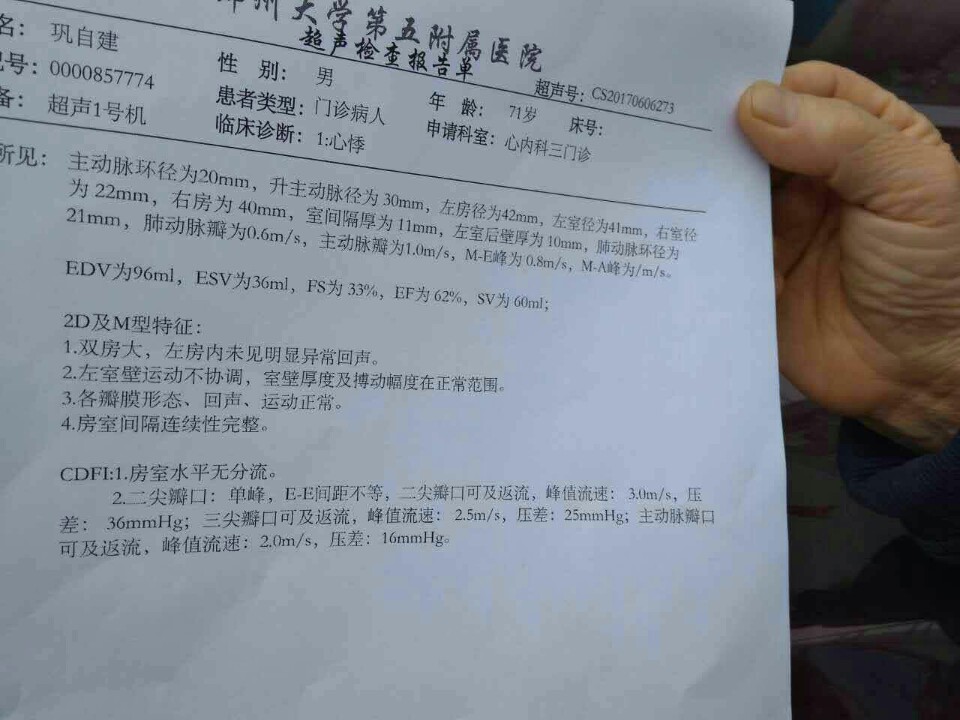 州大学第五附属医院
超声检查报告单
超声号: CS20170606273
名: 巩自建
性 别: 男
年 龄: 71岁
床号:
号: 0000857774
患者类型: 门诊病人
申请科室: 心内科三门诊
备: 超声1号机
临床诊断: 1:心悸
所见: 主动脉环径为20mm，升主动脉径为30mm，左房径为42mm，左室径为41mm，右室径
为 22mm，右房为 40mm，室间隔厚为11mm，左室后壁厚为10mm，肺动脉环径为
21mm，肺动脉瓣为0.6m/s，主动脉瓣为1.0m/s，M-E峰为 0.8m/s，M-A峰为/m/s。
EDV为96ml，ESV为36ml，FS为 33%，EF为 62%，SV为 60ml；
2D及M型特征：
1.双房大，左房内未见明显异常回声。
2.左室壁运动不协调，室壁厚度及搏动幅度在正常范围。
3.各瓣膜形态、回声、运动正常。
4.房室间隔连续性完整。
CDFI:1.房室水平无分流。
2.二尖瓣口：单峰，E-E间距不等，二尖瓣口可及返流，峰值流速： 3.0m/s，压
差： 36mmHg；三尖瓣口可及返流，峰值流速： 2.5m/s，压差：25mmHg；主动脉瓣口
可及返流，峰值流速：2.0m/s，压差：16mmHg。